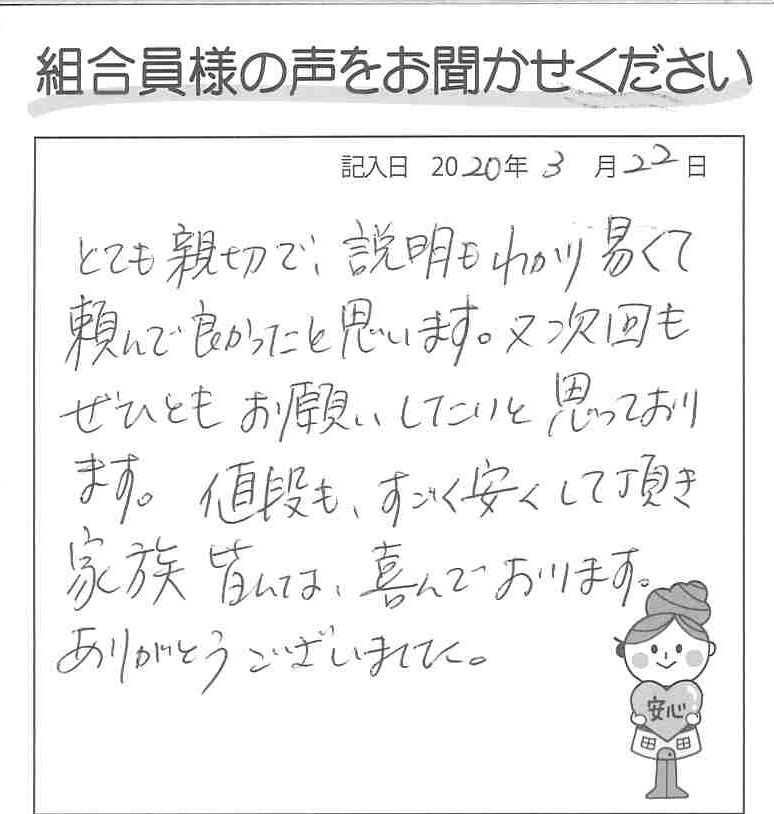 組合員様の声をお聞かせください
記入日 2020年 3 月 22 日
とても親切で、説明もわかり易くて
頼んで良かったと思います。又次回も
ぜひともお願いしたいと思っており
ます。値段も、すごく安くして頂き
家族皆んなは、喜んでおります。
ありがとうございました。
安心